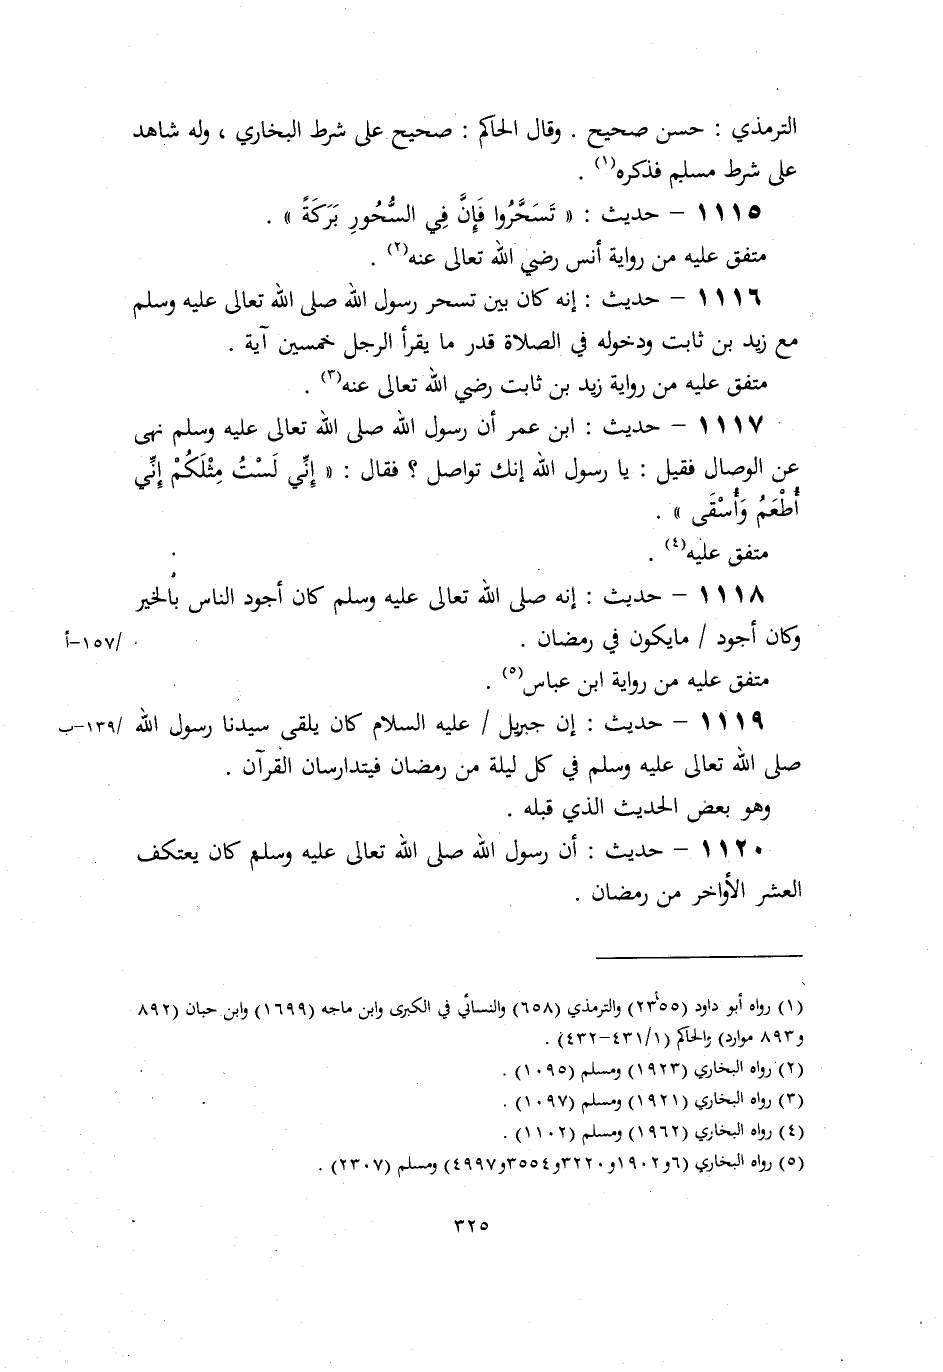 الترمذي : حسن صحيح . وقال الحاكم : صحيح على شرط البخاري ، وله شاهد
على شرط مسلم فذكره(١) .
١١١٥ - حديث : « تَسَحَّرُوا فَإِنَّ فِي السُّحُورِ بَرَكَةً » .
متفق عليه من رواية أنس رضي الله تعالى عنه(٢) .
١١١٦ - حديث : إنه كان بين تسحر رسول الله صلى الله تعالى عليه وسلم
مع زيد بن ثابت ودخوله في الصلاة قدر ما يقرأ الرجل خمسين آية .
متفق عليه من رواية زيد بن ثابت رضي الله تعالى عنه(٣) .
١١١٧ - حديث : ابن عمر أن رسول الله صلى الله تعالى عليه وسلم نهى
عن الوصال فقيل : يا رسول الله إنك تواصل ؟ فقال : « إِنِّي لَسْتُ مِثْلَكُمْ إِنِّي
أُطْعَمُ وَأُسْقَى » .
متفق عليه(٤) .
١١١٨ - حديث : إنه صلى الله تعالى عليه وسلم كان أجود الناس بالخير
وكان أجود / مايكون في رمضان . /١٥٧-أ
متفق عليه من رواية ابن عباس(٥) .
١١١٩ - حديث : إن جبريل / عليه السلام كان يلقى سيدنا رسول الله /١٣٩-ب
صلى الله تعالى عليه وسلم في كل ليلة من رمضان فيتدارسان القرآن .
وهو بعض الحديث الذي قبله .
١١٢٠ - حديث : أن رسول الله صلى الله تعالى عليه وسلم كان يعتكف
العشر الأواخر من رمضان .
(١) رواه أبو داود (٢٣٥٥) والترمذي (٦٥٨) والنسائي في الكبرى وابن ماجه (١٦٩٩) وابن حبان (٨٩٢
و٨٩٣ موارد) والحاكم (٤٣١/١-٤٣٢) .
(٢) رواه البخاري (١٩٢٣) ومسلم (١٠٩٥) .
(٣) رواه البخاري (١٩٢١) ومسلم (١٠٩٧) .
(٤) رواه البخاري (١٩٦٢) ومسلم (١١٠٢) .
(٥) رواه البخاري (٦و١٩٠٢و٣٢٢٠و٣٥٥٤و٤٩٩٧) ومسلم (٢٣٠٧) .
٣٢٥